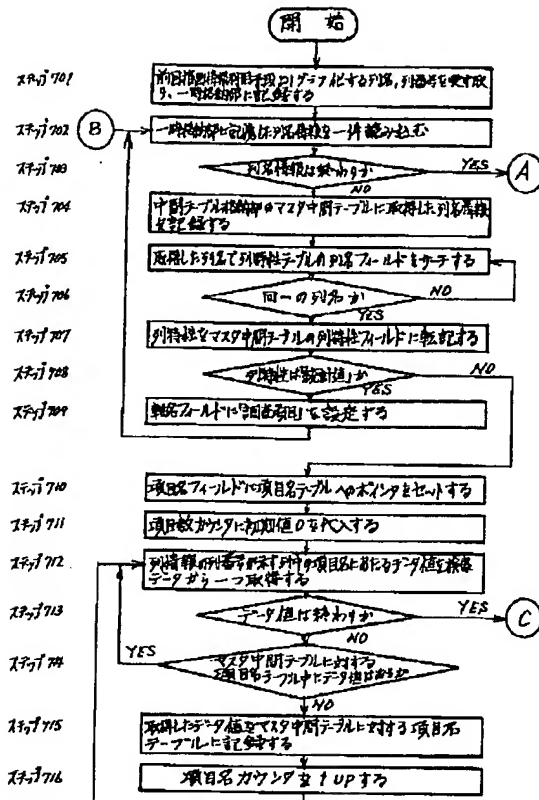 開始
ステップ701
グラフ化する列名,列番号を受け取り、一時格納部に記録する
ステップ702
B
一時格納部に記憶した列名情報を一件読み込む
ステップ703
列名情報は終わりか
YES
A
NO
ステップ704
中間テーブル格納部のマスタ中間テーブルに取得した列名情報を記録する
ステップ705
取得した列名で列特性テーブルの列名フィールドをサーチする
ステップ706
同一の列名か
NO
YES
ステップ707
列特性をマスタ中間テーブルの列特性フィールドに転記する
ステップ708
列特性は「統計値」か
NO
YES
ステップ709
軸名フィールドに「調査項目」を設定する
ステップ710
項目名フィールドに項目名テーブルへのポインタをセットする
ステップ711
項目数カウンタに初期値0を代入する
ステップ712
列情報の列番号が示す列中の項目名にあたるデータ値を検索
データから一つ取得する
ステップ713
データ値は終わりか
YES
C
NO
YES
ステップ714
マスタ中間テーブルに対する
項目名テーブル中にデータ値はあるか
NO
ステップ715
取得したデータ値をマスタ中間テーブルに対する項目名
テーブルに記録する
ステップ716
項目名カウンタを1UPする